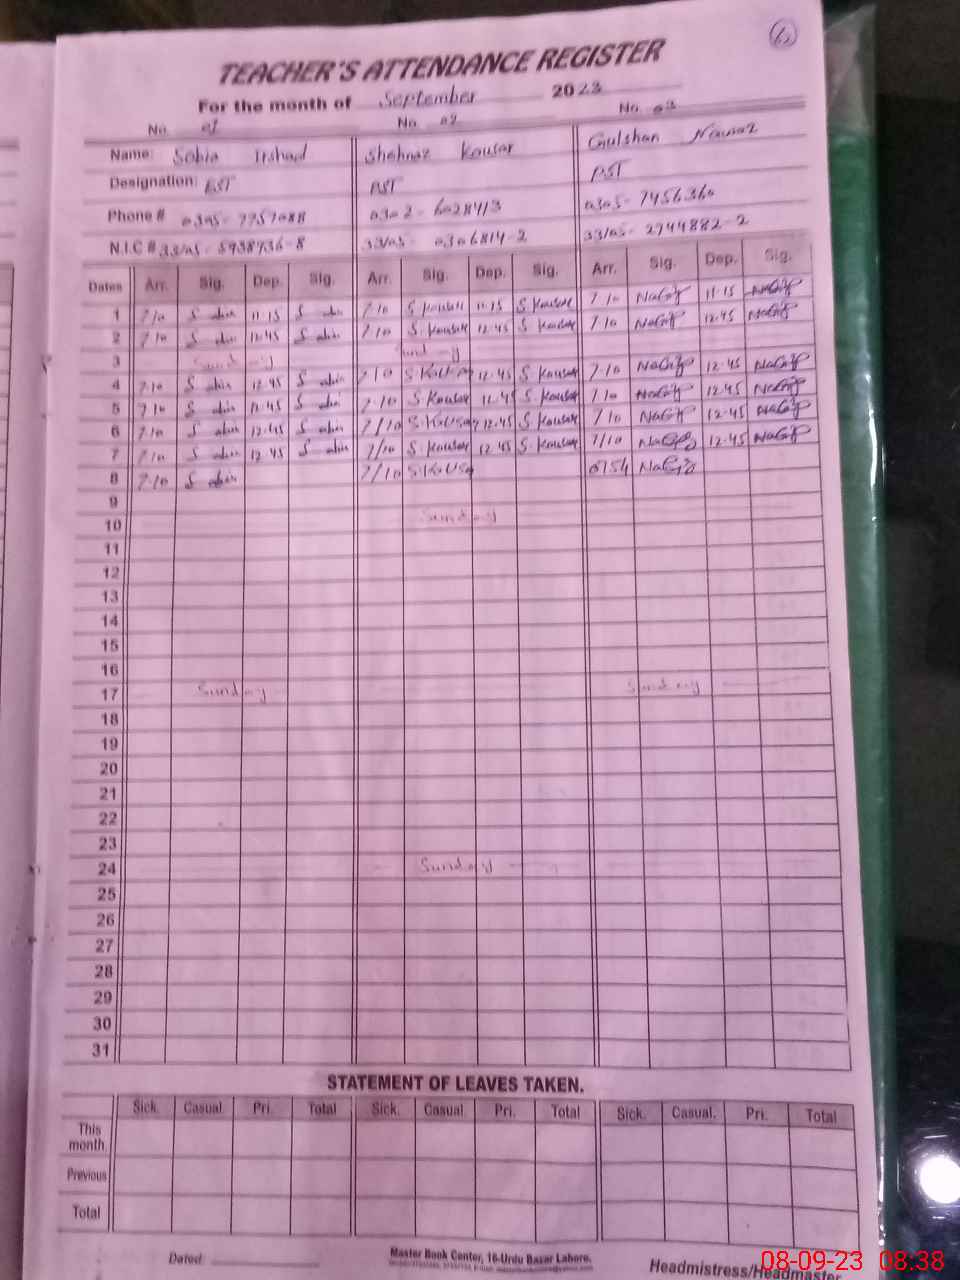 TEACHER'S ATTENDANCE REGISTER
For the month of September 2023
No. 01 No. 02 No. 03
Name: Sobia Irshad Shahnaz Kousar Gulshan Nawaz
Designation: PST PST
Phone # 0302-6028413 0305-7456360
N.I.C # 33105-5938936-8 33105-0306814-2 33105-2744882-2
Dates Arr. Sig. Dep. Sig. Arr. Sig. Dep. Sig. Arr. Sig. Dep. Sig.
1 7/10 11.15 7/10 S Kousar 11.15 S Kousar 7/10 11.15
2 7/10 12.45 7/10 S. Kousar 12.45 S Kousar 7/10 12.45
3 Sunday Sunday
4 7.10 12.45 7/10 S Kousar 12.45 S Kousar 7/10 12.45
5 7/10 12.45 7/10 S Kousar 12.45 S Kousar 7/10 12.45
6 7.10 12.45 7/10 S Kousar 12.45 S Kousar 7/10 12.45
7 7/10 12.45 7/10 S. Kousar 12.45 S Kousar 7/10 12.45
8 7.10 7/10 S Kousar
9
10 Sunday
11
12
13
14
15
16
17 Sunday Sunday
18
19
20
21
22
23
24 Sunday
25
26
27
28
29
30
31
STATEMENT OF LEAVES TAKEN.
Sick. Casual. Pri. Total Sick. Casual. Pri. Total Sick. Casual. Pri. Total
This month
Previous
Total
Dated:
Master Book Center, 16-Urdu Bazar Lahore.
Headmistress/Headmaster
08-09-23 08:38